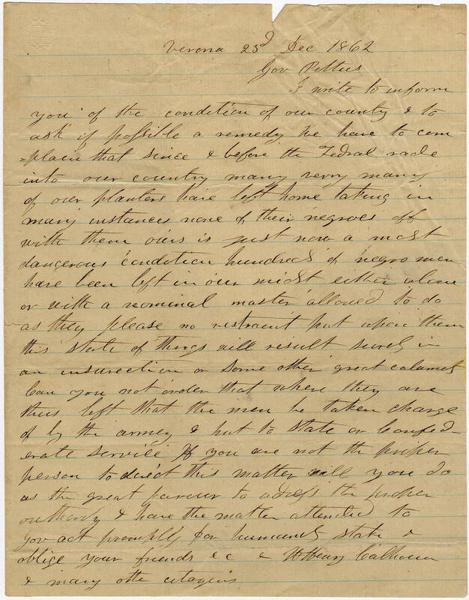 Verona 23d Dec 1862
Gov Pettus
I write to inform
you of the condition of our country & to
ask if possible a remedy We have to com
plain that since & before the Fedral rade
into our country many verry many
of our planters have left home taking in
many instances none of their negroes off
with them ours is just now a most
dangerous condition hundreds of negro men
have been left in our midst either alone
or with a nominal master allowed to do
as they please no restraint put upon them
this state of things will result surely in
an insurection or some other great calamity
Can you not order that where they are
thus left that the men be taken charge
of by the army & put to State or Confed
erate service If you are not the proper
person to direct this matter will you do
us the great favour to address the proper
authority & have the matter attended to
Gov act promptly for humanity state &
oblige your friends &c & Henry Calhoun
& many othe citizens